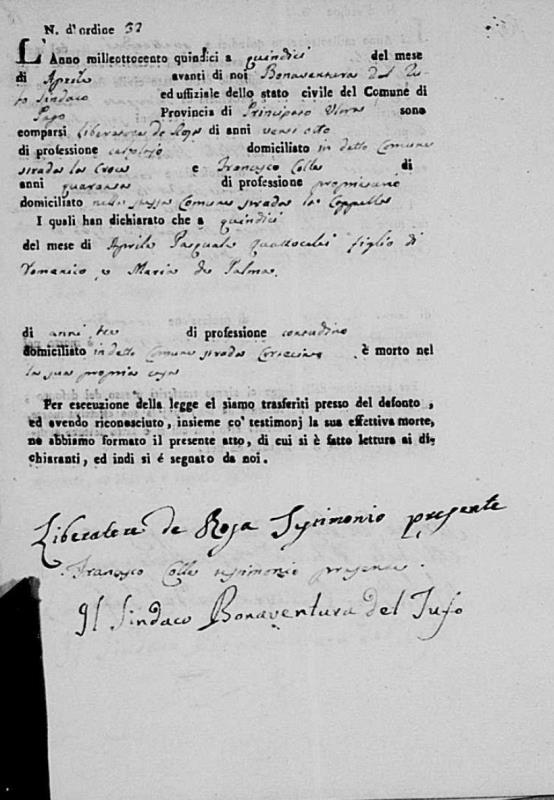 N. d'ordine 32
L'Anno milleottocento quindici a quindici del mese
di Aprile avanti di noi Bonaventura del Tu-
fo Sindaco ed uffiziale dello stato civile del Comune di
Pago Provincia di Principato Ultra sono
comparsi Liberatore de Rosa di anni vent'otto
di professione domiciliato in detto Comune
strada la Croce e Francesco Colle di
anni quaranta di professione proprietario
domiciliato nello stesso Comune strada la Cappella
I quali han dichiarato che a quindici
del mese di Aprile Pasquale figlio di
Domenico e Maria de Palma
di anni tre di professione contadino
domiciliato in detto Comune strada è morto nel
la sua propria casa
Per esecuzione della legge ci siamo trasferiti presso del defonto,
ed avendo riconosciuto, insieme co' testimonj la sua effettiva morte,
ne abbiamo formato il presente atto, di cui si è fatto lettura ai di-
chiaranti, ed indi si è segnato da noi.
Liberatore de Rosa Testimonio presente
Francesco Colle testimonio presente
Il Sindaco Bonaventura del Tufo